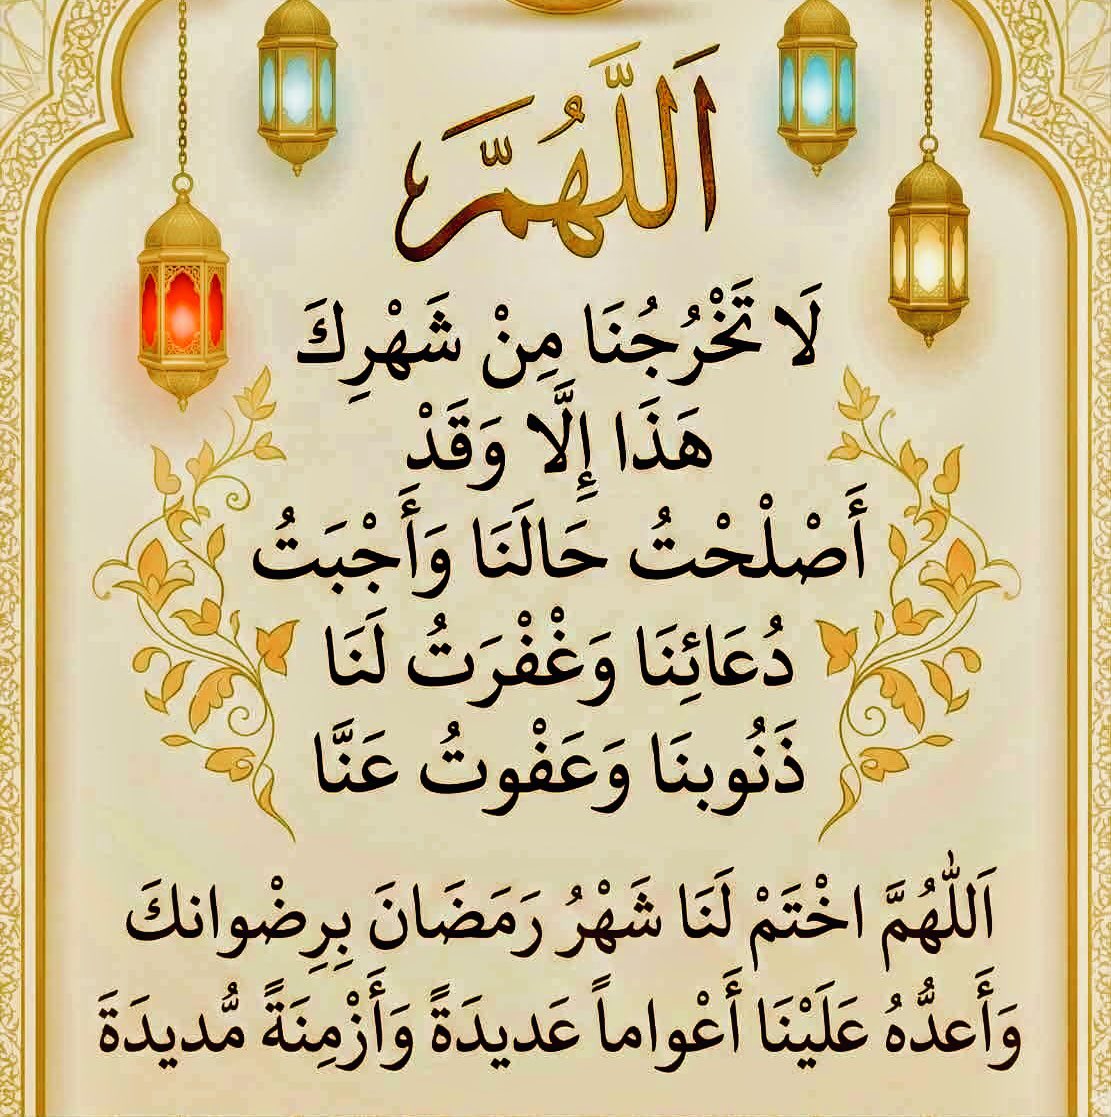 اَللَّهُمَّ
لَا تَخْرُجُنَا مِنْ شَهْرِكَ
هَذَا إِلَّا وَقَدْ
أَصْلْحْتُ حَالَنَا وَأَجْبَتُ
دُعَائِنَا وَغْفْرَتُ لَنَا
ذَنُوبنَا وَعَفْوتُ عَنَّا
اَللّٰهُمَّ اخْتَمْ لَنَا شَهْرُ رَمَضَانَ بِرِضْوانكَ
وَأَعدُّهُ عَلَيْنَا أَعْواماً عَديدَةً وَأَزْمِنَةً مُّديدَةَ